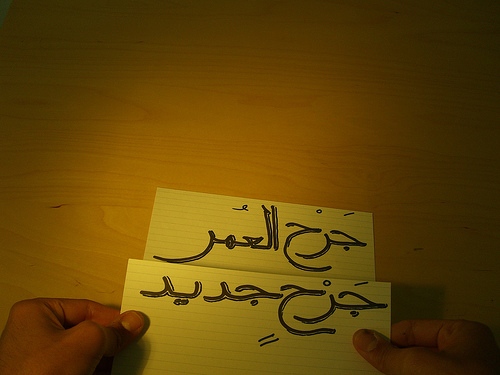 جَرْح العُمر
جَرْحٍ جديد